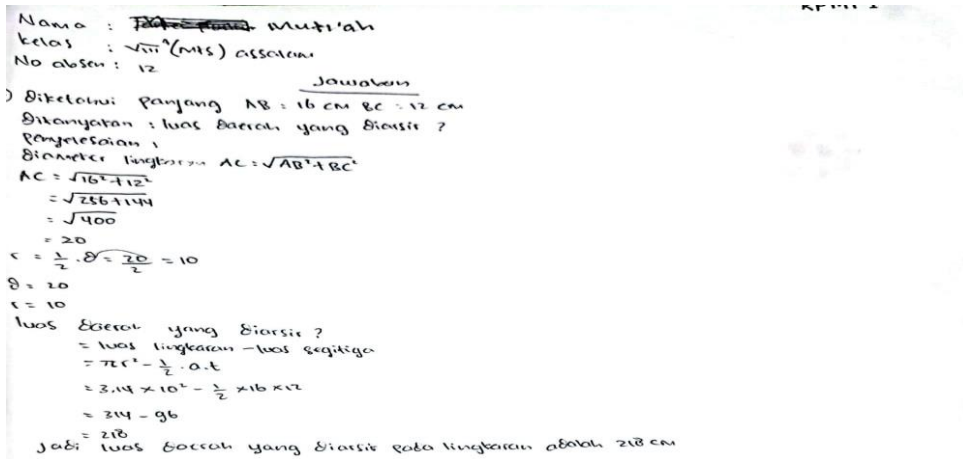 Nama : Muti'ah
kelas : VIII A (MtS) assalam
No absen : 12
Jawaban
) Diketahui Panjang AB : 16 cm BC : 12 cm
Ditanyakan : luas Daerah yang Diarsir ?
Penyelesaian ,
Diameter lingkaran AC : √AB²+BC²
AC = √16²+12²
= √256+144
= √400
= 20
r = 1/2 . D = 20/2 = 10
D = 20
r = 10
luas Daerah yang Diarsir ?
= luas lingkaran - luas segitiga
= πr² - 1/2 . a.t
= 3,14 × 10² - 1/2 × 16 × 12
= 314 - 96
= 218
Jadi luas Daerah yang Diarsir pada lingkaran adalah 218 cm